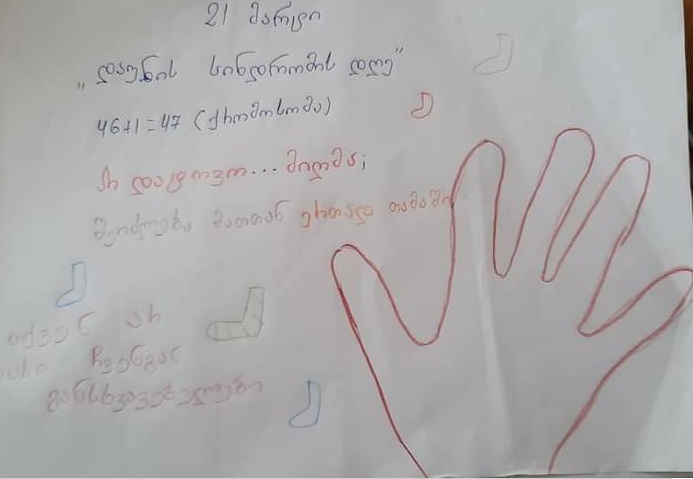 21 მარტი
„დაუნის სინდრომის დღე"
46+1=47 (ქრომოსომა)
არ დატოვო... მიღმა;
შეიძლება მათთან ერთად თამაში
თქვენ არ
ხართ ჩვენგან
განსხვავებულები